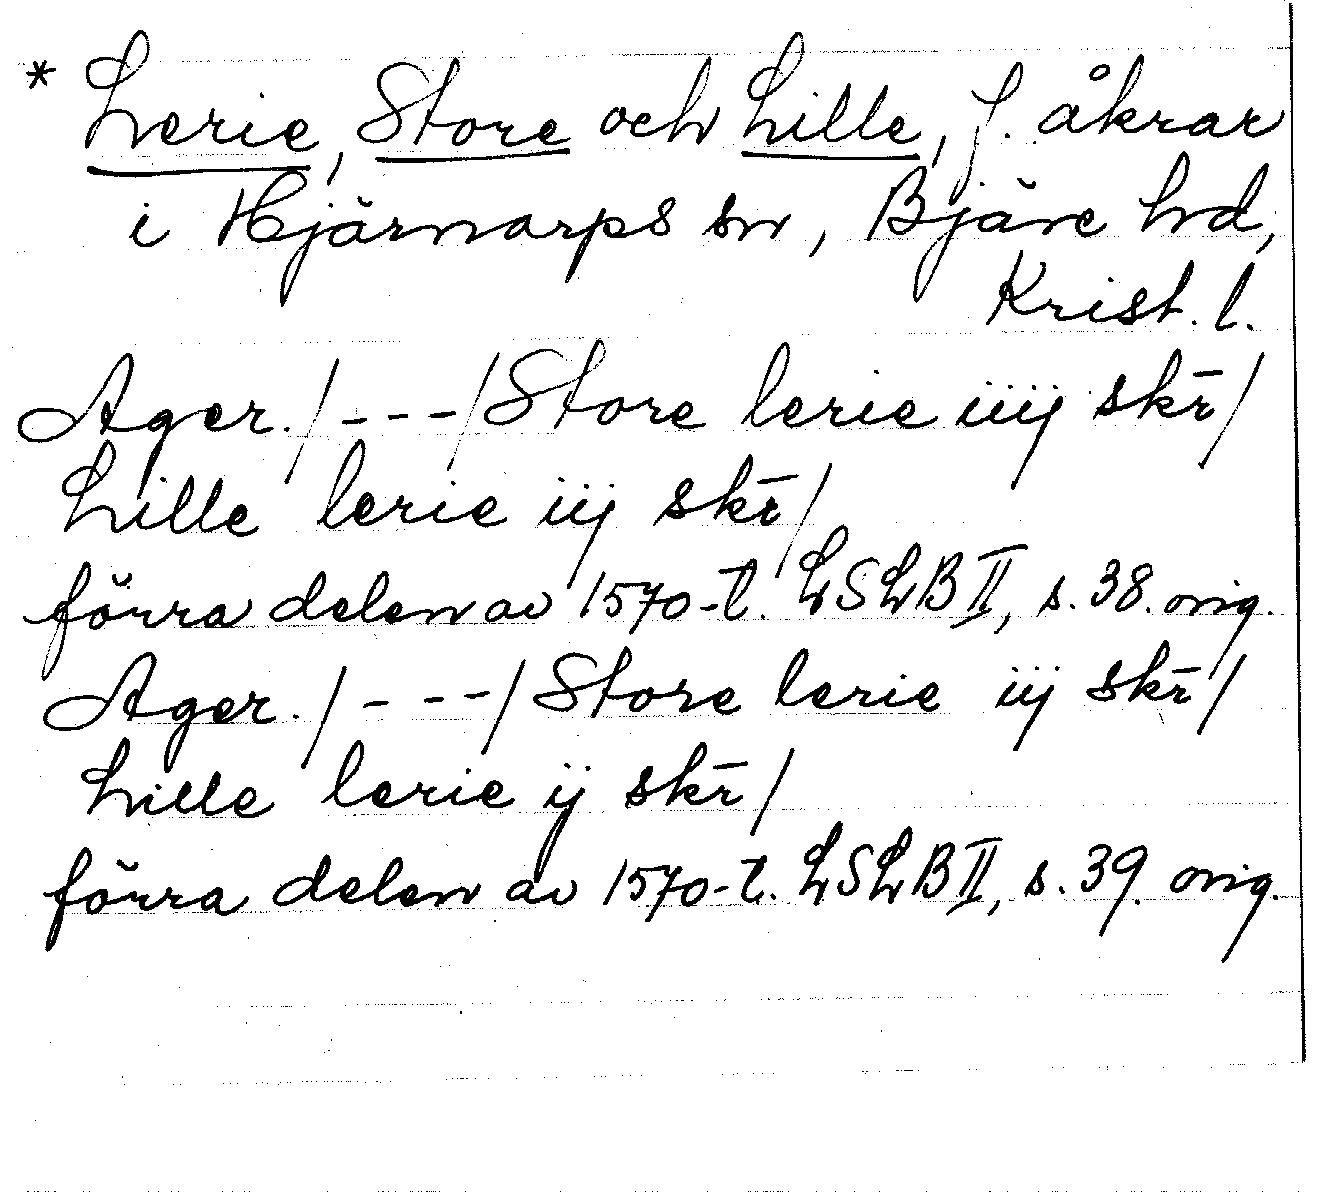 * Lerie, Store och Lille, f. åkrar
i Hjärnarps sn, Bjäre hd,
Krist. l.
Ager./---/Store lerie iiij skr̄/
Lille lerie iij skr̄/
förra delen av 1570-t. LSLB II, s. 38. orig.
Ager./---/Store lerie iij skr̄/
Lille lerie ij skr̄/
förra delen av 1570-t. LSLB II, s. 39. orig.